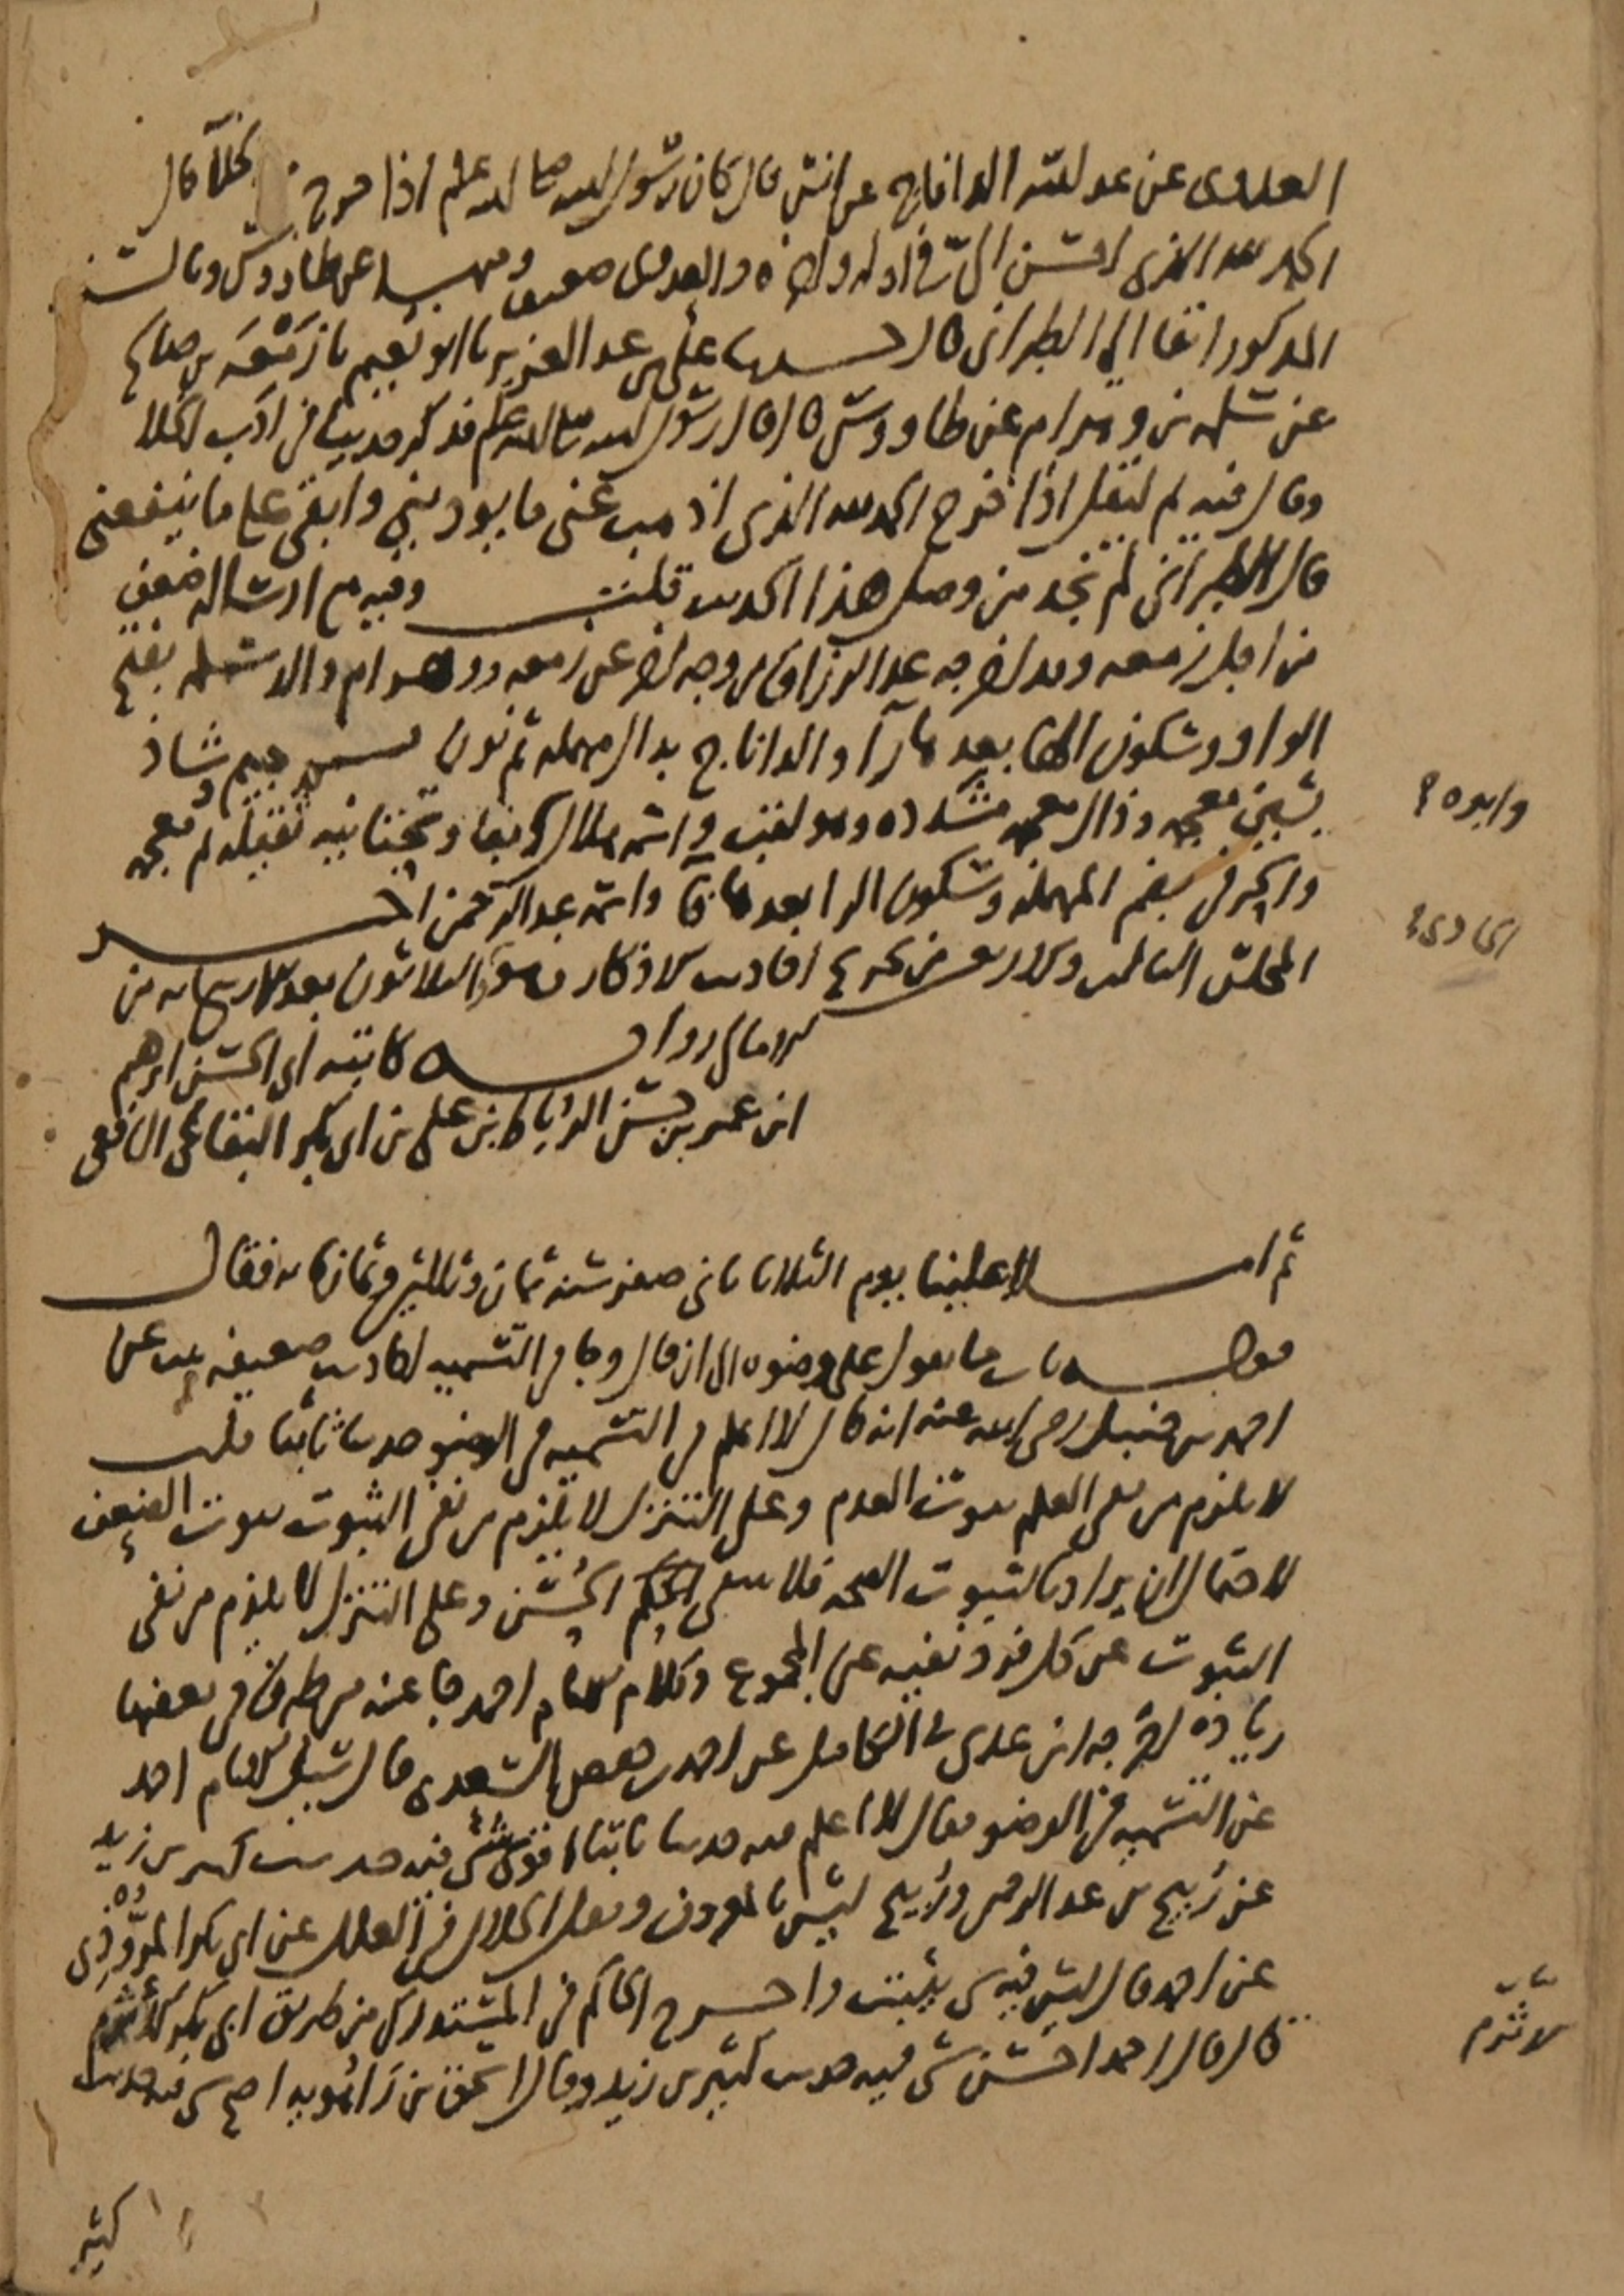 العدوى عن عبد الله الداناج عن انس قال كان رسول الله صلى الله عليه وسلم اذا خرج من الخلا قال
الحمد لله الذى احسن الى فى اوله واخره والعدوى ضعيف وبه عن طاووس وبالسند
المذكور انفا الى الطبرانى قال حدثنا على بن عبد العزيز نا ابو نعيم نا زَمْعَه بن صالح
عن سلمه بن وهرام عن طاووس قال قال رسول الله صلى الله عليه وسلم فذكر حديثا فى ادب الخلا
وقال فيه ثم ليقل اذا خرج الحمد لله الذى اذهب عنى ما يوذينى وابقى على ما ينفعنى
قال الطبرانى لم نجد من وصل هذا الحديث قلت وفيه مع ارساله ضعف
من اجل زمعه وقد اخرجه عبد الرزاق من وجه اخر عن زمعه ووهرام والد سلمه بفتح
الواو وسكون الها بعدها را والداناج بدال مهمله ثم نون جيم وشاذ
بشين معجمه وذال معجمه مشدده وهو لقب واسمه هلال بفا وتحتانيه ثقيله ثم معجمه
والحرفى بضم المهمله وسكون الرا بعدها فا واسمه عبد الرحمن اخر
المجلس الثالث والاربعين من تخريج احاديث الاذكار وهو الثلاثون بعد الاربعمايه من
الامالى روايه كاتبه ابى الحسن ابرهيم
ابن عمر بن حسن الرُّباط بن على بن ابى بكر البقاعى الشافعى
ثم املا علينا يوم الثلاثا ثانى صفر سنه ثمان وثلاثين وثمانمايه فقال
قوله باب ما يقول على وضوه الى ان قال وجا فى التسميه احاديث ضعيفه ثبت عن
احمد بن حنبل رضى الله عنه انه قال لا اعلم فى التسميه فى الوضو حديثا ثابتا قلت
لا يلزم من نفى العلم ثبوت العدم وعلى التنزل لا يلزم من نفى الثبوت ثبوت الضعف
لاحتمال ان يراد بالثبوت الصحه فلا ينتفى الحكم الحُسْن وعلى التنزل لا يلزم من نفى
الثبوت عن كل فرد نفيه عن المجموع وكلام الامام احمد جا عنه من طرق فى بعضها
زياده اخرجه ابن عدى فى الكامل عن احمد بن حفص السعدى قال سئل الامام احمد
عن التسميه فى الوضو فقال لا اعلم فيه حديثا ثابتا اقوى شى فيه حديث كثير بن زيد
عن رُبيح بن عبد الرحمن ورُبيح ليس بالمعروف ونقل الخلال فى العلل عن ابى بكر المرُّوذى
عن احمد قال ليس فيه شى يثبت واخرج الحاكم فى المستدرك من طريق ابى بكر الاثرم
قال قال احمد احسن شى فيه حديث كثير بن زيد وقال اسحق بن رَاهُويه اصح شى فيه حديث
الاثرم
كثير